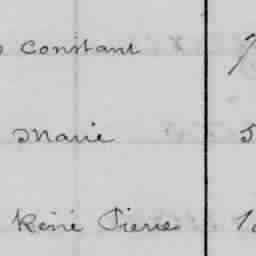 Constant 7
Marie 5
René Pierre 1